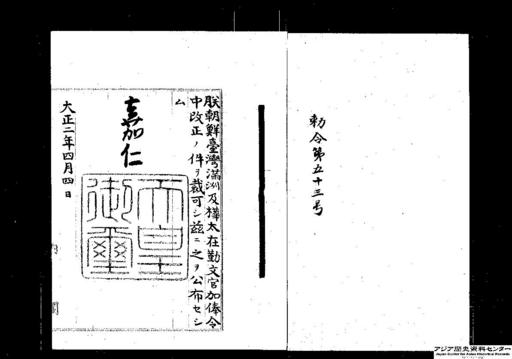 勅令第五十三号
朕朝鮮臺灣滿洲及樺太在勤文官加俸令
中改正ノ件ヲ裁可シ茲ニ之ヲ公布セシ
ム
嘉仁
天皇御璽
大正二年四月四日
アジア歴史資料センター
Japan Center for Asian Historical Records